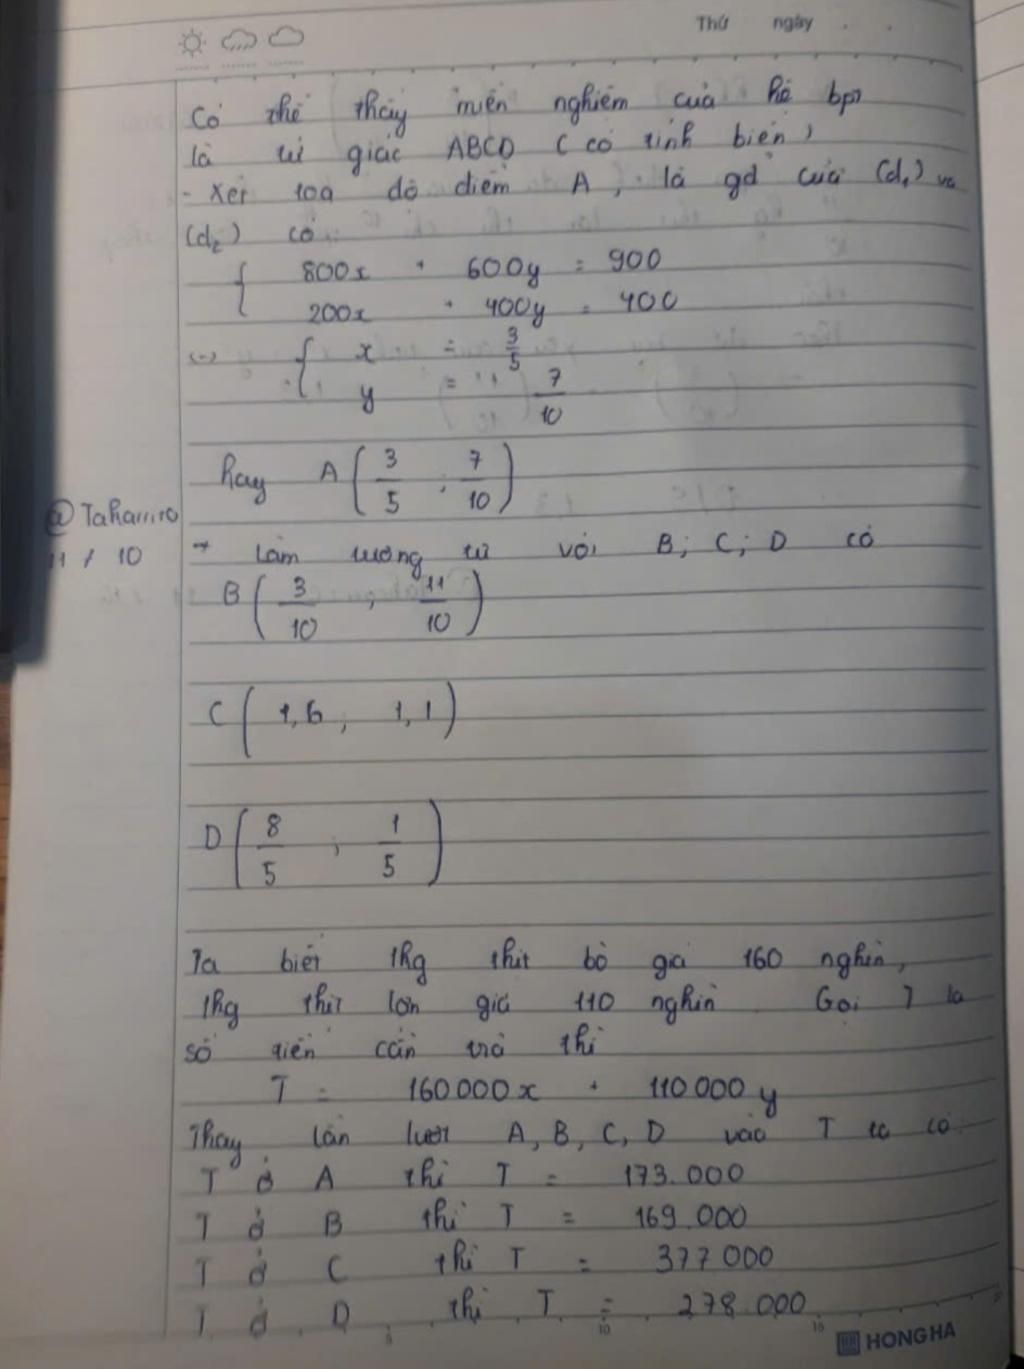 Thứ ngày
Có thể thấy miền nghiệm của hệ bpt
là tứ giác ABCD (có tính biên)
- Xét toạ độ điểm A, là gđ của (d₁) và
(d₂) có
{ 800x + 600y = 900
200x + 400y = 400
(-) { x = 3/5
y = 7/10
hay A ( 3/5 ; 7/10 )
@Taharriro
11 / 10
→ Làm tương tự với B; C; D có
B ( 3/10 ; 11/10 )
C ( 1,6 ; 1,1 )
D ( 8/5 ; 1/5 )
Ta biết 1kg thịt bò giá 160 nghìn,
1kg thịt lợn giá 110 nghìn Gọi T là
số tiền cần trả thì
T = 160000x + 110 000y
Thay lần lượt A, B, C, D vào T ta có:
T ở A thì T = 173.000
T ở B thì T = 169.000
T ở C thì T = 377 000
T ở D thì T = 278.000
10 15
HONG HA